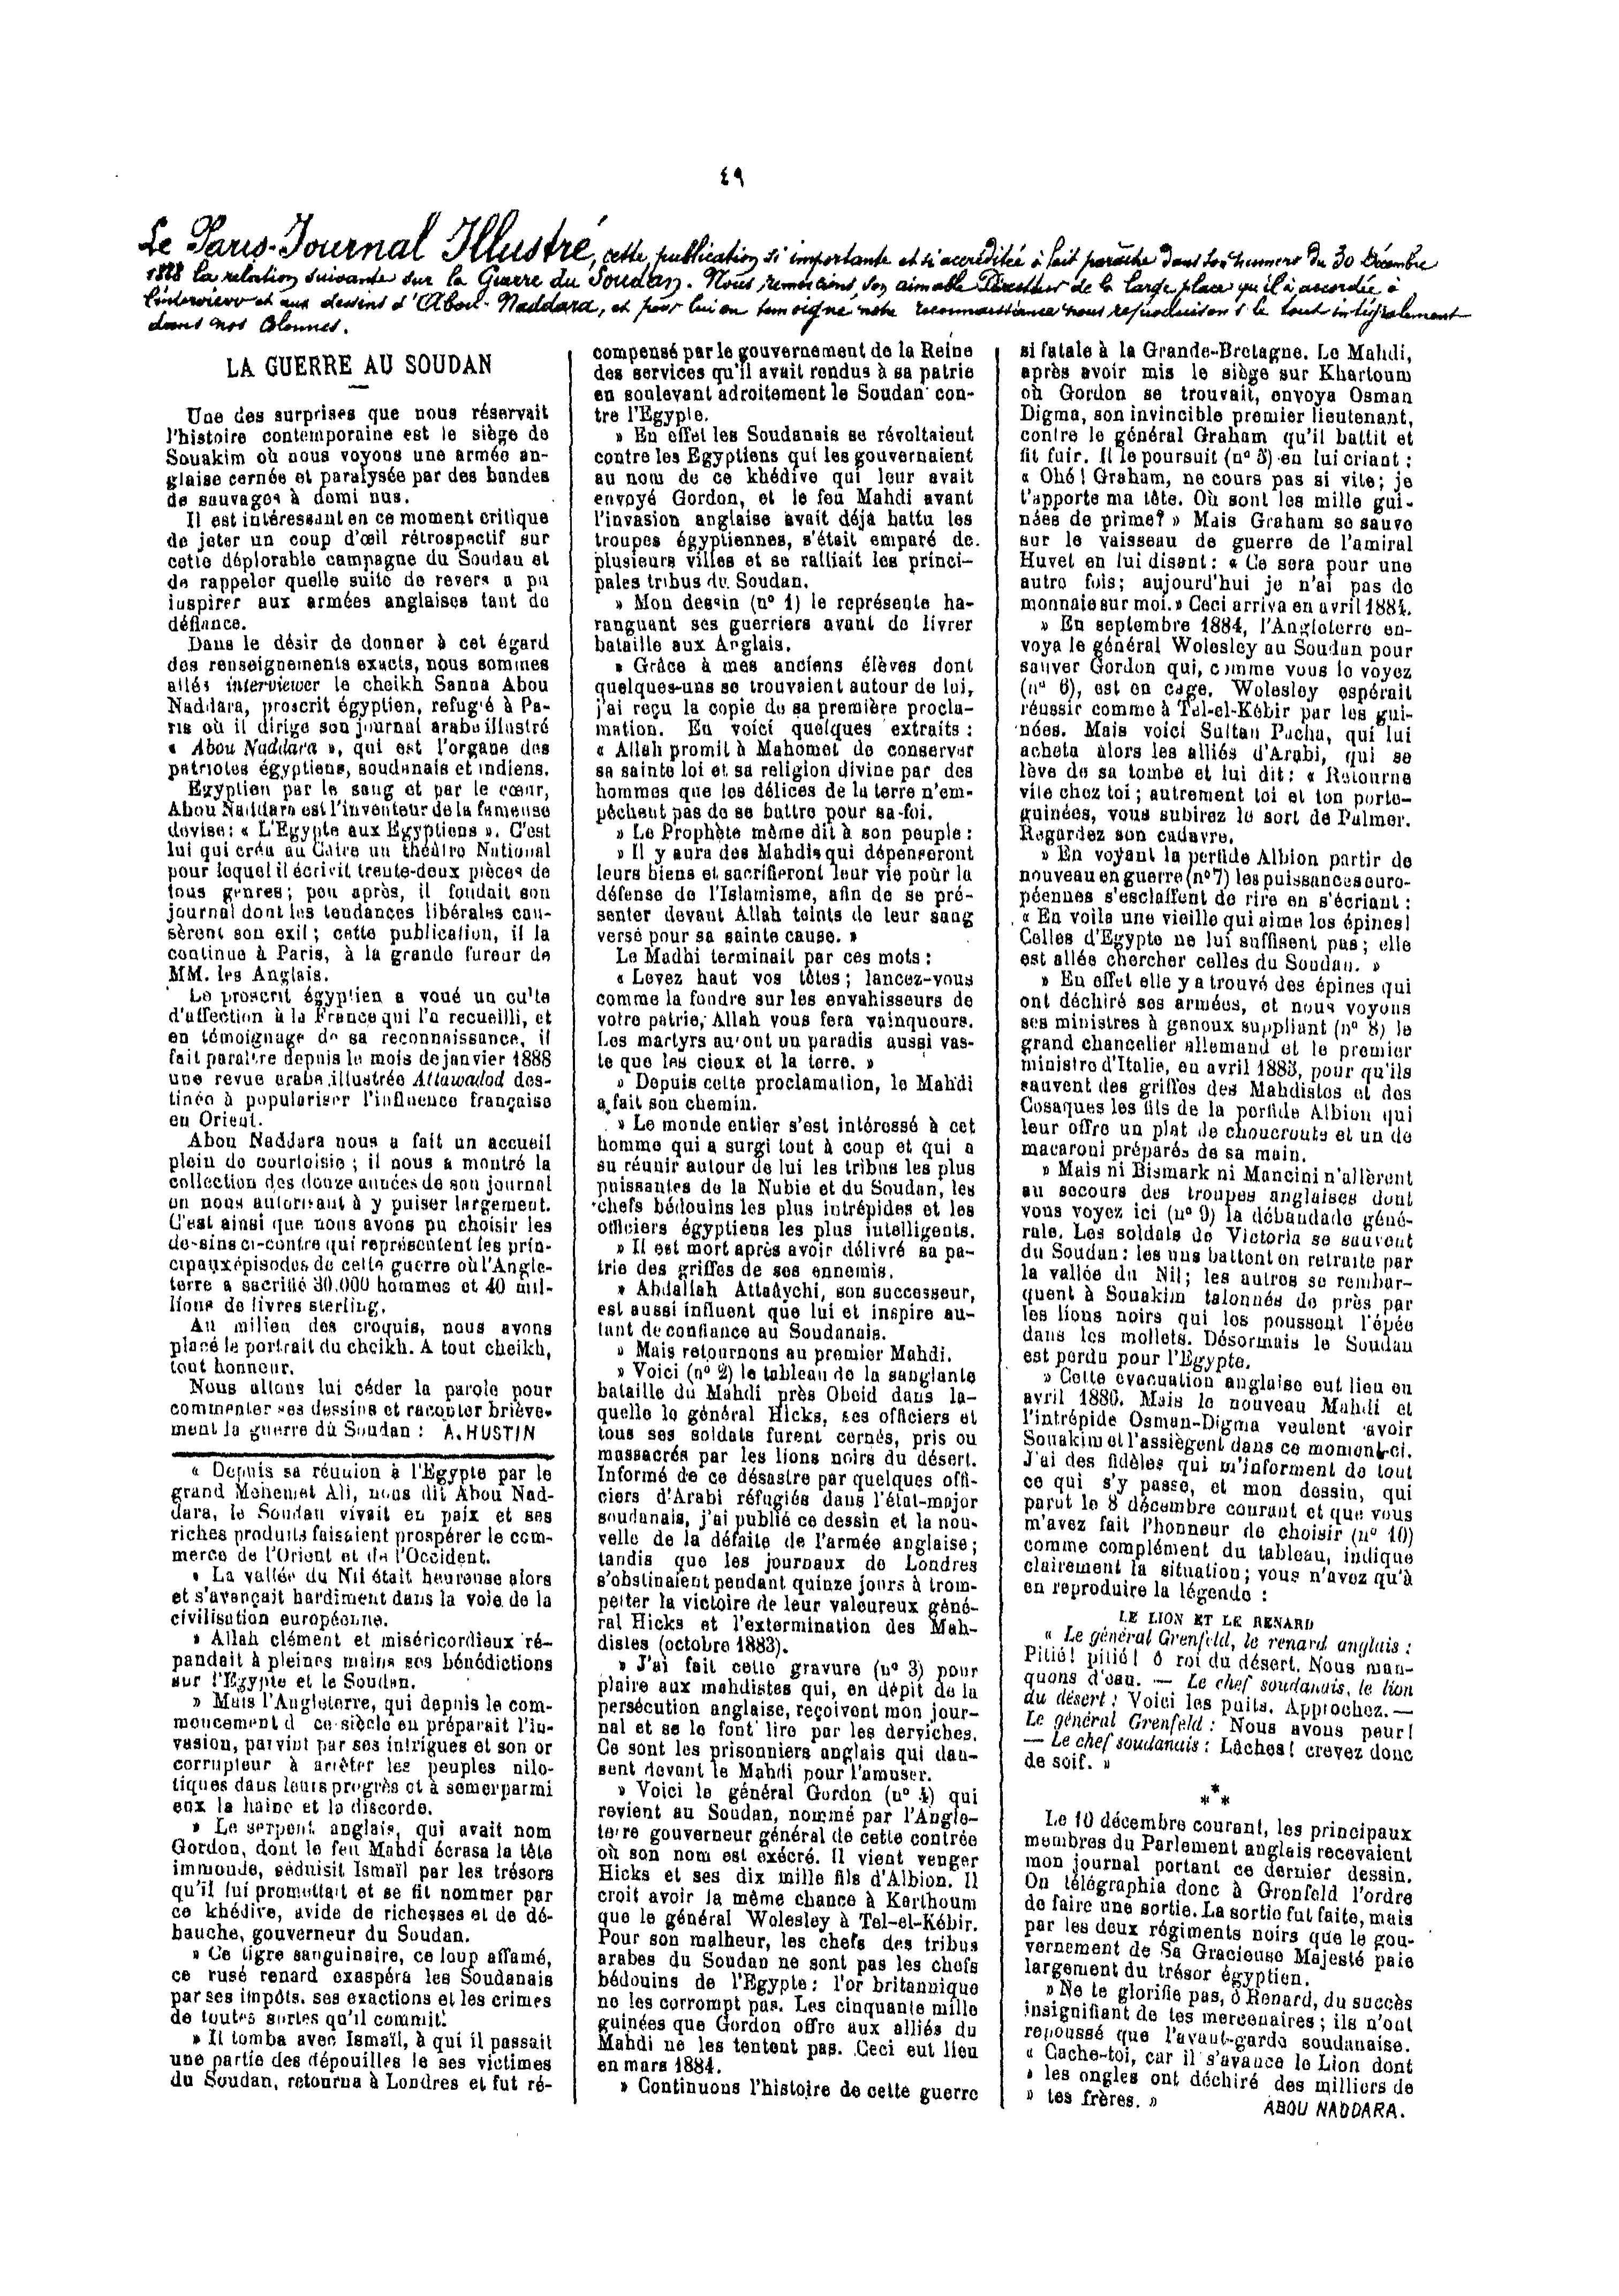 ٤٩
Le Paris-Journal Illustré, cette publication si importante et si accréditée à fait paraître dans son numero du 30 Décembre
1888 la relation suivante sur la Guerre du Soudan. Nous remercions son aimable Directeur de la large place qu'il à accordée à
l'interview et aux dessins d'Abou-Naddara, et pour lui en temoigné notre reconnaissance nous reproduisons le tout intégralement
dans nos Colonnes.
LA GUERRE AU SOUDAN
Une des surprises que nous réservait
l'histoire contemporaine est le siège de
Souakim où nous voyons une armée an-
glaise cernée et paralysée par des bandes
de sauvages à demi nus.
Il est intéressant en ce moment critique
de jeter un coup d'œil rétrospectif sur
cette déplorable campagne du Soudan et
de rappeler quelle suite de revers a pu
inspirer aux armées anglaises tant de
défiance.
Dans le désir de donner à cet égard
des renseignements exacts, nous sommes
allés interviewer le cheikh Sanua Abou
Naddara, proscrit égyptien, refugié à Pa-
ris où il dirige son journal arabe illustré
« Abou Naddara », qui est l'organe des
patriotes égyptiens, soudanais et indiens.
Egyptien par le sang et par le cœur,
Abou Naddara est l'inventeur de la fameuse
devise: « L'Egypte aux Egyptiens ». C'est
lui qui créa au Caire un théâtre National
pour lequel il écrivit trente-deux pièces de
tous genres; peu après, il fondait son
journal dont les tendances libérales cau-
sèrent son exil; cette publication, il la
continue à Paris, à la grande fureur de
MM. les Anglais.
Le proscrit égyptien a voué un culte
d'affection à la France qui l'a recueilli, et
en témoignage de sa reconnaissance, il
fait paraître depuis le mois de janvier 1888
une revue arabe illustrée Attawadod des-
tinée à populariser l'influence française
en Orient.
Abou Naddara nous a fait un accueil
plein de courtoisie; il nous a montré la
collection des douze années de son journal
en nous autorisant à y puiser largement.
C'est ainsi que nous avons pu choisir les
dessins ci-contre qui représentent les prin-
cipaux épisodes de cette guerre où l'Angle-
terre a sacrifié 30.000 hommes et 40 mil-
lions de livres sterling.
Au milieu des croquis, nous avons
placé le portrait du cheikh. A tout cheikh,
tout honneur.
Nous allons lui céder la parole pour
commenter ses dessins et raconter briève-
ment la guerre du Soudan : A. HUSTIN
« Depuis sa réunion à l'Egypte par le
grand Mehemet Ali, nous dit Abou Nad-
dara, le Soudan vivait en paix et ses
riches produits faisaient prospérer le com-
merce de l'Orient et de l'Occident.
» La vallée du Nil était heureuse alors
et s'avançait hardiment dans la voie de la
civilisation européenne.
» Allah clément et miséricordieux ré-
pandait à pleines mains ses bénédictions
sur l'Egypte et le Soudan.
» Mais l'Angleterre, qui depuis le com-
mencement d ce siècle en préparait l'in-
vasion, parvint par ses intrigues et son or
corrupteur à arrêter les peuples nilo-
tiques dans leurs progrès et à semer parmi
eux la haine et la discorde.
» Le serpent anglais, qui avait nom
Gordon, dont le feu Mahdi écrasa la tête
immonde, séduisit Ismaïl par les trésors
qu'il lui promettait et se fit nommer par
ce khédive, avide de richesses et de dé-
bauche, gouverneur du Soudan.
» Ce tigre sanguinaire, ce loup affamé,
ce rusé renard exaspéra les Soudanais
par ses impôts, ses exactions et les crimes
de toutes sortes qu'il commit.
» Il tomba avec Ismaïl, à qui il passait
une partie des dépouilles de ses victimes
du Soudan, retourna à Londres et fut ré-
compensé par le gouvernement de la Reine
des services qu'il avait rendus à sa patrie
en soulevant adroitement le Soudan con-
tre l'Egypte.
» En effet les Soudanais se révoltaient
contre les Egyptiens qui les gouvernaient
au nom de ce khédive qui leur avait
envoyé Gordon, et le feu Mahdi avant
l'invasion anglaise avait déjà battu les
troupes égyptiennes, s'était emparé de
plusieurs villes et se ralliait les princi-
pales tribus du Soudan.
» Mon dessin (n° 1) le représente ha-
ranguant ses guerriers avant de livrer
bataille aux Anglais.
» Grâce à mes anciens élèves dont
quelques-uns se trouvaient autour de lui,
j'ai reçu la copie de sa première procla-
mation. En voici quelques extraits :
« Allah promit à Mahomet de conserver
sa sainte loi et sa religion divine par des
hommes que les délices de la terre n'em-
pêchent pas de se battre pour sa foi.
» Le Prophète même dit à son peuple :
» Il y aura des Mahdis qui dépenseront
leurs biens et sacrifieront leur vie pour la
défense de l'Islamisme, afin de se pré-
senter devant Allah teints de leur sang
versé pour sa sainte cause. »
Le Madhi terminait par ces mots :
« Levez haut vos têtes; lancez-vous
comme la foudre sur les envahisseurs de
votre patrie, Allah vous fera vainqueurs.
Les martyrs auront un paradis aussi vas-
te que les cieux et la terre. »
» Depuis cette proclamation, le Mahdi
a fait son chemin.
» Le monde entier s'est intéressé à cet
homme qui a surgi tout à coup et qui a
su réunir autour de lui les tribus les plus
puissantes de la Nubie et du Soudan, les
chefs bédouins les plus intrépides et les
officiers égyptiens les plus intelligents.
» Il est mort après avoir délivré sa pa-
trie des griffes de ses ennemis.
» Abdallah Attaâychi, son successeur,
est aussi influent que lui et inspire au-
tant de confiance au Soudanais.
» Mais retournons au premier Mahdi.
» Voici (n° 2) le tableau de la sanglante
bataille du Mahdi près Obeid dans la-
quelle le général Hicks, ses officiers et
tous ses soldats furent cernés, pris ou
massacrés par les lions noirs du désert.
Informé de ce désastre par quelques offi-
ciers d'Arabi réfugiés dans l'état-major
soudanais, j'ai publié ce dessin et la nou-
velle de la défaite de l'armée anglaise;
tandis que les journaux de Londres
s'obstinaient pendant quinze jours à trom-
peter la victoire de leur valeureux géné-
ral Hicks et l'extermination des Mah-
distes (octobre 1883).
» J'ai fait cette gravure (n° 3) pour
plaire aux mahdistes qui, en dépit de la
persécution anglaise, reçoivent mon jour-
nal et se le font lire par les derviches.
Ce sont les prisonniers anglais qui dan-
sent devant le Mahdi pour l'amuser.
» Voici le général Gordon (n° 4) qui
revient au Soudan, nommé par l'Angle-
terre gouverneur général de cette contrée
où son nom est exécré. Il vient venger
Hicks et ses dix mille fils d'Albion. Il
croit avoir la même chance à Karthoum
que le général Wolesley à Tel-el-Kébir.
Pour son malheur, les chefs des tribus
arabes du Soudan ne sont pas les chefs
bédouins de l'Egypte: l'or britannique
ne les corrompt pas. Les cinquante mille
guinées que Gordon offre aux alliés du
Mahdi ne les tentent pas. Ceci eut lieu
en mars 1884.
» Continuons l'histoire de cette guerre
si fatale à la Grande-Bretagne. Le Mahdi,
après avoir mis le siège sur Khartoum
où Gordon se trouvait, envoya Osman
Digma, son invincible premier lieutenant,
contre le général Graham qu'il battit et
fit fuir. Il le poursuit (n° 5) en lui criant :
« Ohé! Graham, ne cours pas si vite; je
t'apporte ma tête. Où sont les mille gui-
nées de prime? » Mais Graham se sauve
sur le vaisseau de guerre de l'amiral
Huvet en lui disant: « Ce sera pour une
autre fois; aujourd'hui je n'ai pas de
monnaie sur moi.» Ceci arriva en avril 1884.
» En septembre 1884, l'Angleterre en-
voya le général Wolesley au Soudan pour
sauver Gordon qui, comme vous le voyez
(n° 6), est en cage. Wolesley espérait
réussir comme à Tel-el-Kébir par les gui-
nées. Mais voici Sultan Pacha, qui lui
acheta alors les alliés d'Arabi, qui se
lève de sa tombe et lui dit: « Retourne
vite chez toi; autrement toi et ton porte-
guinées, vous subirez le sort de Palmer.
Regardez son cadavre.
» En voyant la perfide Albion partir de
nouveau en guerre (n° 7) les puissances euro-
péennes s'esclaffent de rire en s'écriant :
« En voila une vieille qui aime les épines!
Celles d'Egypte ne lui suffisent pas; elle
est allée chercher celles du Soudan. »
» En effet elle y a trouvé des épines qui
ont déchiré ses armées, et nous voyons
ses ministres à genoux suppliant (n° 8) le
grand chancelier allemand et le premier
ministre d'Italie, en avril 1883, pour qu'ils
sauvent des griffes des Mahdistes et des
Cosaques les fils de la perfide Albion qui
leur offre un plat de choucroute et un de
macaroni préparés de sa main.
» Mais ni Bismark ni Mancini n'allèrent
au secours des troupes anglaises dont
vous voyez ici (n° 9) la débandade géné-
rale. Les soldats de Victoria se sauvent
du Soudan: les uns battent en retraite par
la vallée du Nil; les autres se rembar-
quent à Souakim talonnés de près par
les lions noirs qui les poussent l'épée
dans les mollets. Désormais le Soudan
est perdu pour l'Egypte.
» Cette évacuation anglaise eut lieu en
avril 1886. Mais le nouveau Mahdi et
l'intrépide Osman-Digma veulent avoir
Souakim et l'assiègent dans ce moment-ci.
J'ai des fidèles qui m'informent de tout
ce qui s'y passe, et mon dessin, qui
parut le 8 décembre courant et que vous
m'avez fait l'honneur de choisir (n° 10)
comme complément du tableau, indique
clairement la situation; vous n'avez qu'à
en reproduire la légende :
LE LION ET LE RENARD
« Le général Grenfeld, le renard anglais :
Pitié! pitié! ô roi du désert. Nous man-
quons d'eau. — Le chef soudanais, le lion
du désert : Voici les puits. Approchez. —
Le général Grenfeld : Nous avons peur!
— Le chef soudanais : Lâches! crevez donc
de soif. »
* * *
Le 10 décembre courant, les principaux
membres du Parlement anglais recevaient
mon journal portant ce dernier dessin.
On télégraphia donc à Grenfeld l'ordre
de faire une sortie. La sortie fut faite, mais
par les deux régiments noirs que le gou-
vernement de Sa Gracieuse Majesté paie
largement du trésor égyptien.
» Ne te glorifie pas, ô Renard, du succès
insignifiant de tes mercenaires; ils n'ont
repoussé que l'avant-garde soudanaise.
« Cache-toi, car il s'avance le Lion dont
» les ongles ont déchiré des milliers de
» tes frères. »
ABOU NADDARA.